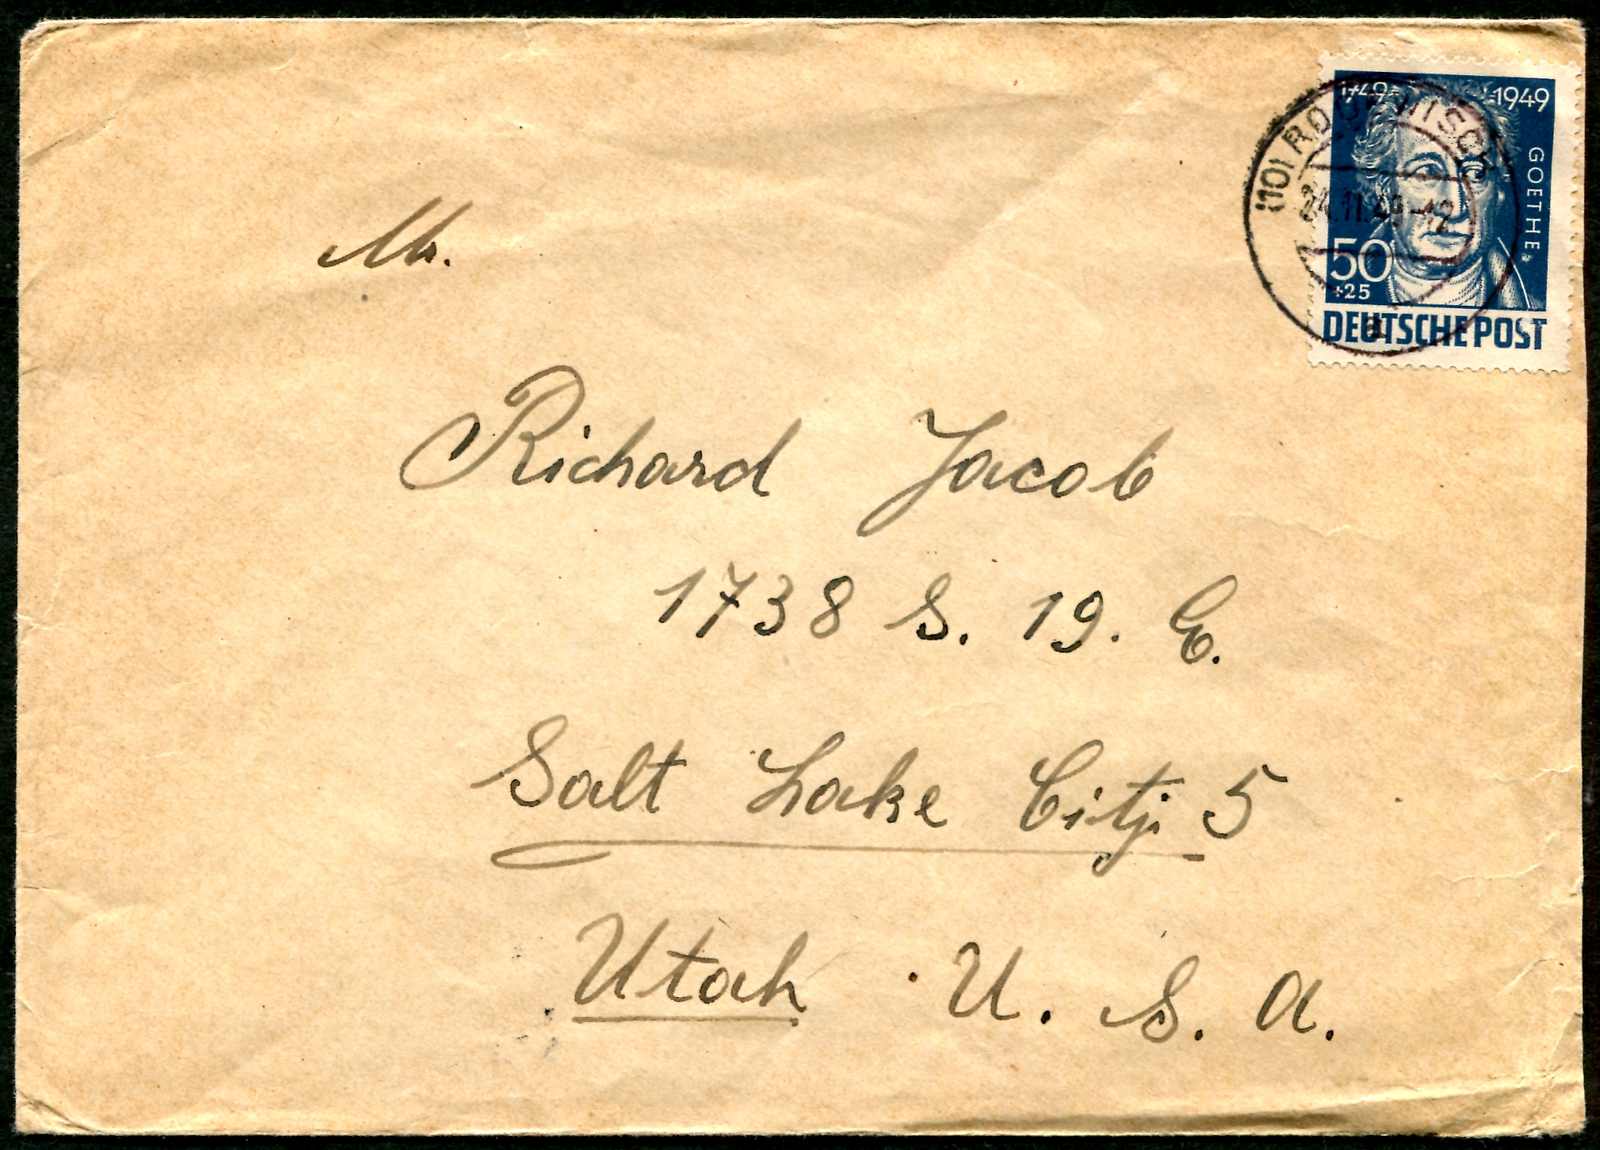 1749 1949
GOETHE
50
+25
DEUTSCHE POST
(10)
.11.49-12
a
Mr.
Richard Jacob
1738 S. 19. E.
Salt Lake City 5
Utah U. S. A.